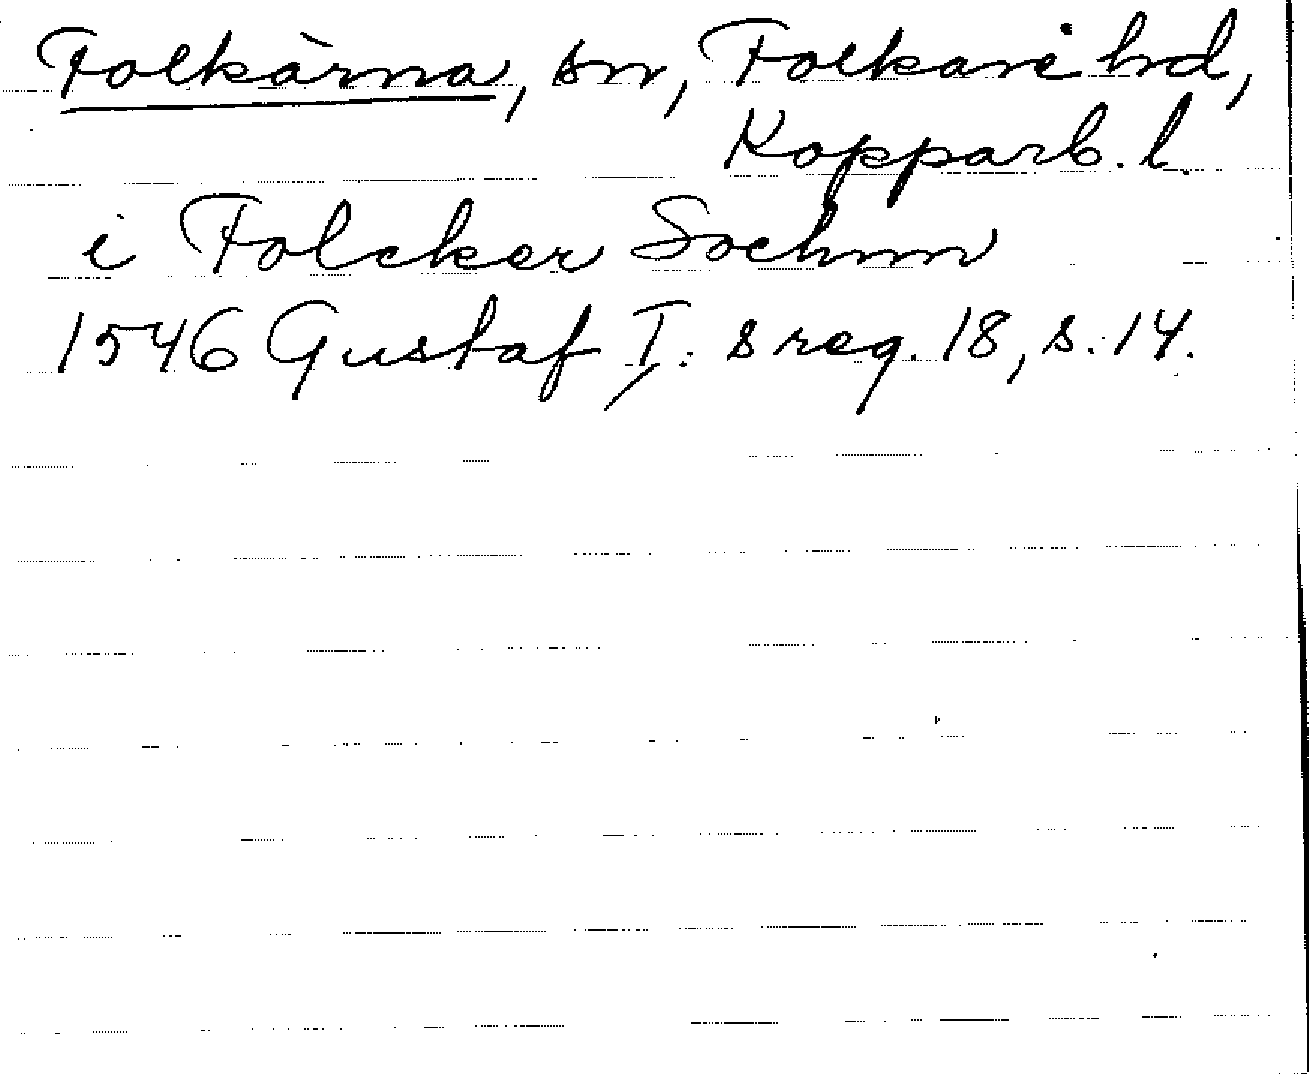 Folkärna, sn, Folkare hd,
Kopparb. l.
i Folcker Sochnn
1546 Gustaf I: s reg. 18, s. 14.